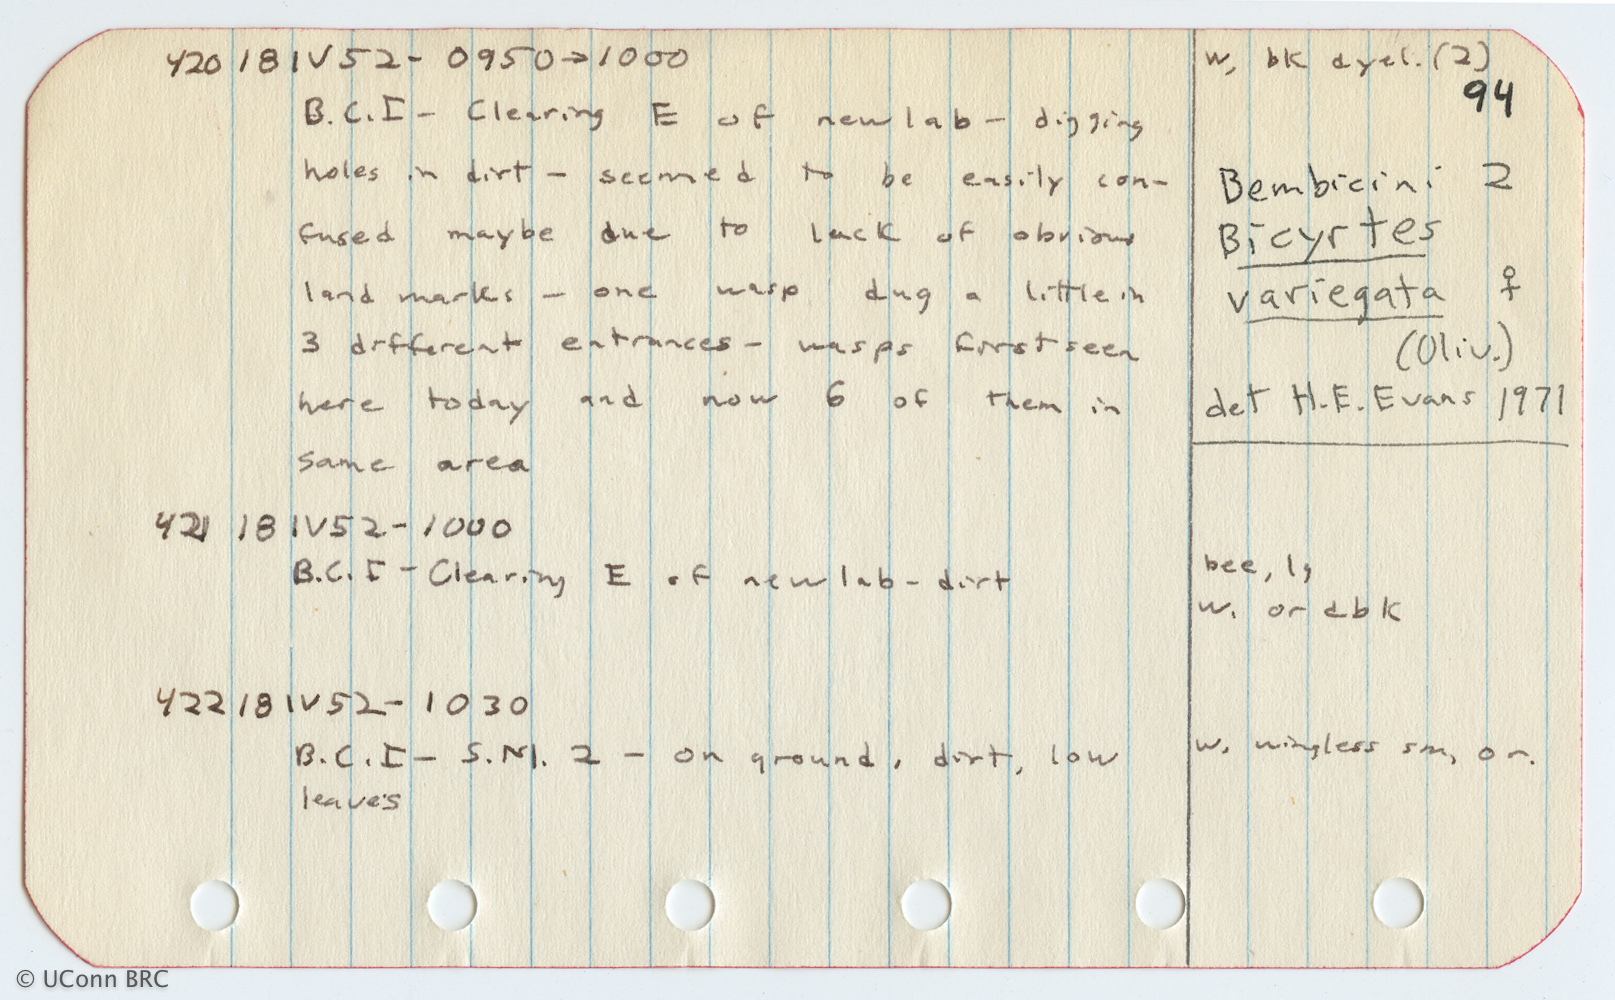 420 18 IV 52 - 0950→1000
w, bk dyel. (2)
94
B.C.I - Clearing E of new lab - digging
holes in dirt - seemed to be easily con-
fused maybe due to lack of obvious
land marks - one wasp dug a little in
3 different entrances - wasps first seen
here today and now 6 of them in
same area
Bembicini 2
Bicyrtes
variegata ♀
(Oliv.)
det H.E. Evans 1971
421 18 IV 52 - 1000
B.C.I - Clearing E of new lab - dirt
bee, lg
w. or dbk
422 18 IV 52 - 1030
B.C.I - S.M. 2 - on ground, dirt, low
leaves
w. wingless sm, or.
© UConn BRC